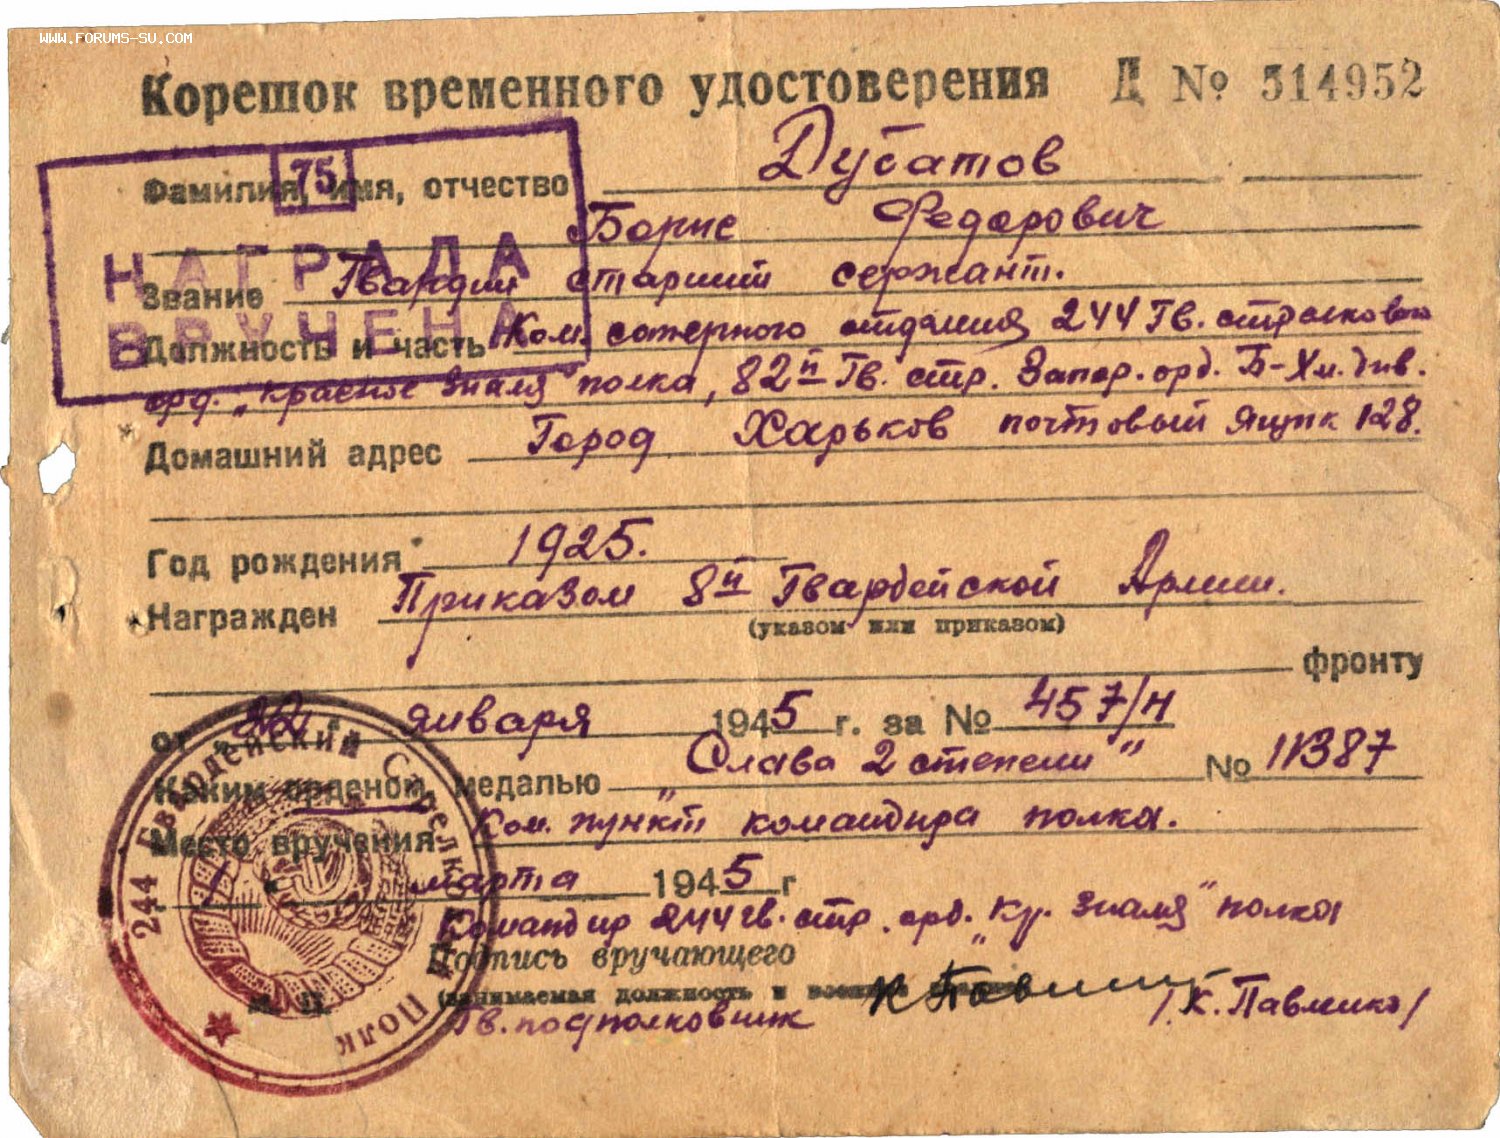 WWW.FORUMS-SU.COM
Корешок временного удостоверения Д № 314952
75
НАГРАДА
ВРУЧЕНА
Фамилия, имя, отчество Дубатов
Борис Федорович
Звание Гвардии старший сержант.
Должность и часть Ком. саперного отделния 244 Гв. стрелкового
орд. „Красное Знамя" полка, 82й Гв. стр. Запор. орд. Б-Хм. див.
Домашний адрес Город Харьков почтовый ящик 128.
Год рождения 1925.
Награжден Приказом 8й Гвардейской Армии.
(указом или приказом)
фронту
от января 1945 г. за № 457/н
Каким орденом, медалью „Слава 2 степени" № 11387
Место вручения Ком. пункт командира полка.
марта 1945 г
Командир 244 гв. стр. орд. „Кр. Знамя" полка
Подпись вручающего
(занимаемая должность и
Гв. подполковник К Павлик /К. Павленко/
244 Гвардейский Стрелковый Полк